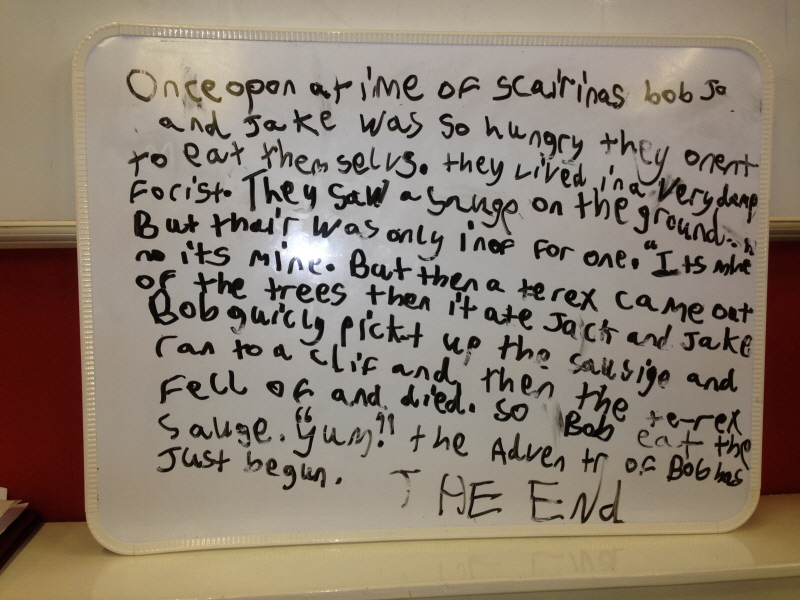 Once opon a time of scairinas bob Ja
and Jake was so hungry they orent
to eat themselvs. they lived in a very damp
Forist. They saw a sauge on the ground.
But thair was only inof for one. "Its mine
no its mine. But then a terex came out
of the trees then it ate Jack and Jake
Bob quicly pickt up the sausige and
ran to a clif and then the te-rex
fell of and died. so Bob eat the
sauge. "Yum!" the Adventr of Bob has
Just begun. THE END